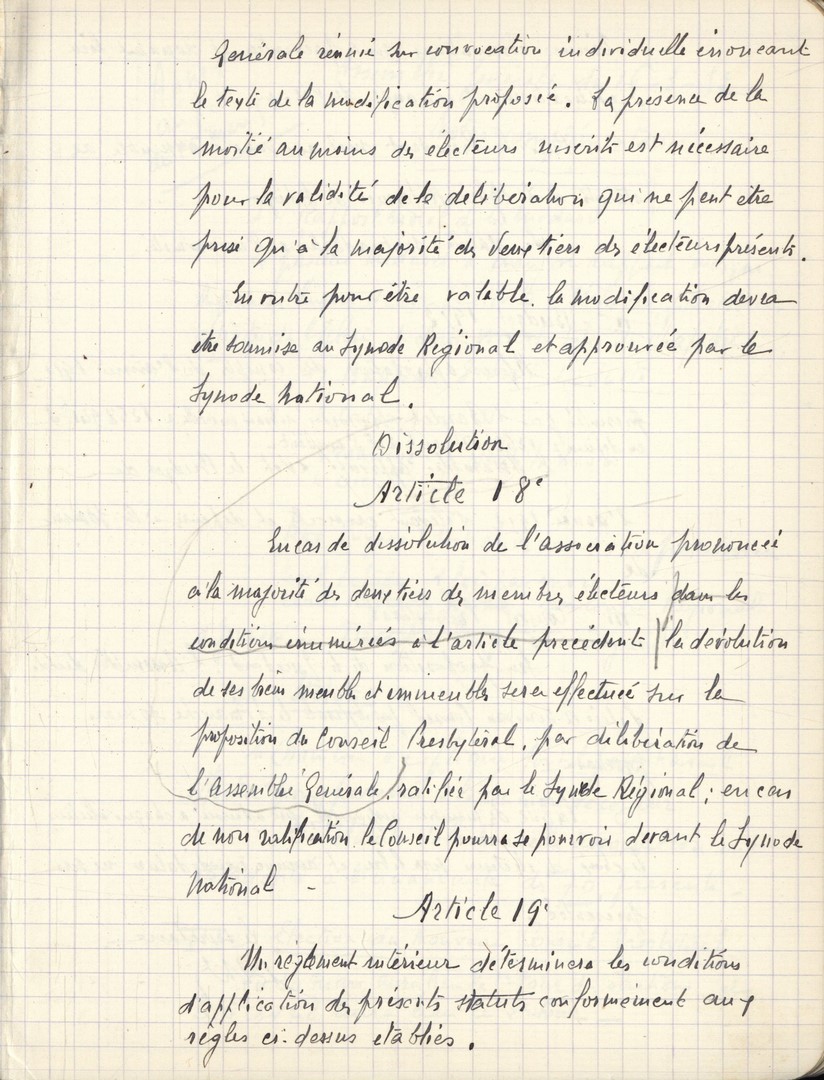 Générale réunie sur convocation individuelle énonçant
le texte de la modification proposée. La présence de la
moitié au moins des électeurs inscrits est nécessaire
pour la validité de la délibération qui ne peut être
prise qu'à la majorité des deux tiers des électeurs présents.
En outre pour être valable, la modification devra
être soumise au Synode Régional et approuvée par le
Synode National.
Dissolution
Article 18e
En cas de dissolution de l'association prononcée
à la majorité des deux tiers des membres électeurs dans les
conditions énumérées à l'article précédent, la dévolution
de ses biens meubles et immeubles sera effectuée sur la
proposition du Conseil Presbytéral, par délibération de
l'Assemblée Générale, ratifiée par le Synode Régional; en cas
de non ratification, le Conseil pourra se pourvoir devant le Synode
National -
Article 19e
Un règlement intérieur déterminera les conditions
d'application des présents statuts conformément aux
règles ci-dessus établies.